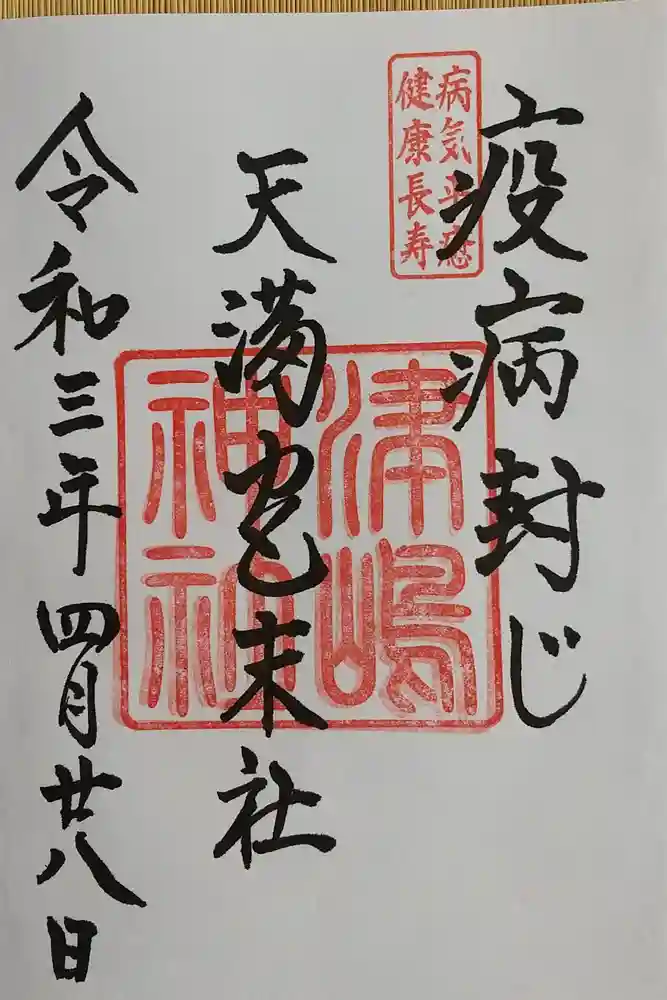 疫病封じ
病気平癒
健康長寿
津嶋
神社
天満宮末社
令和三年四月廿八日